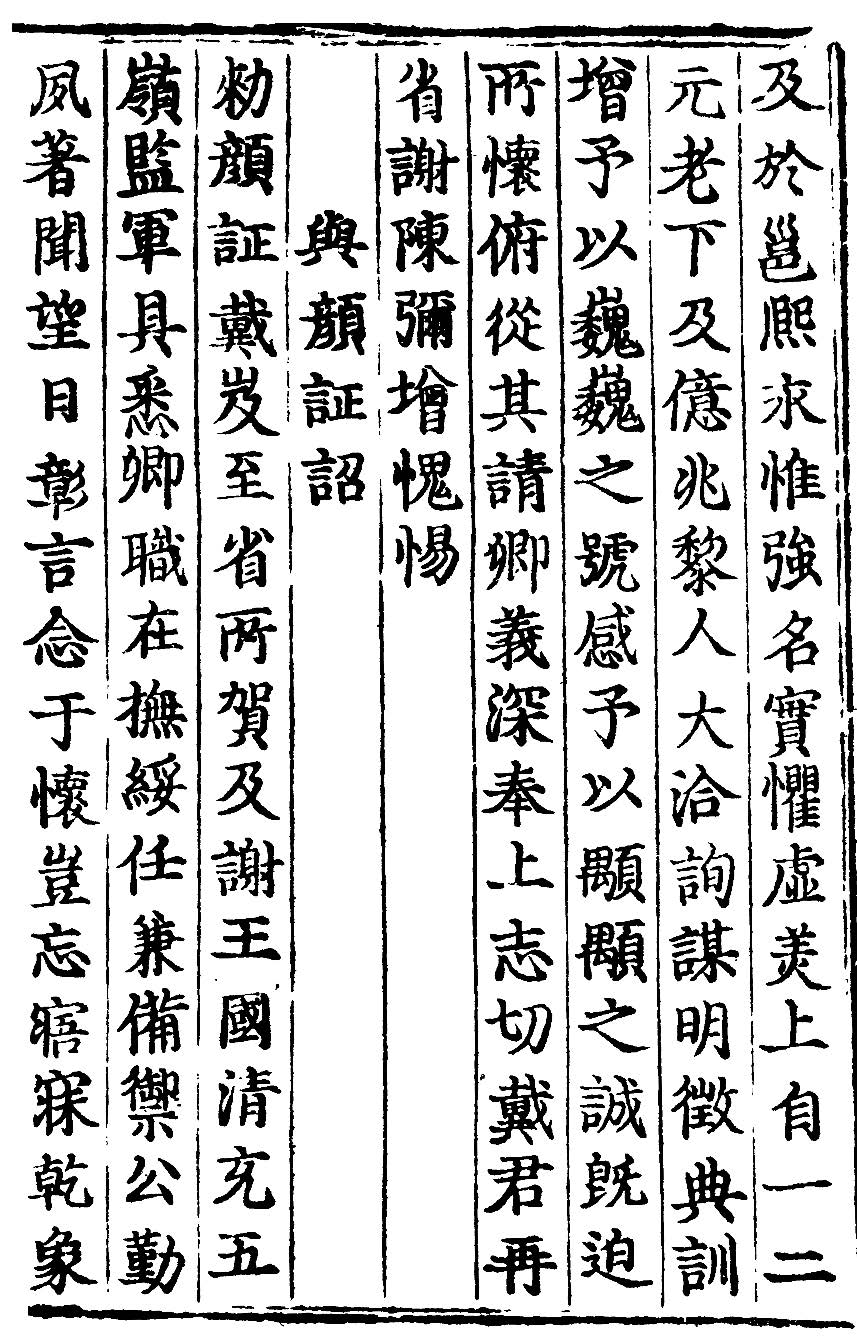 及於邕熙求惟強名實懼虛美上自一二
元老下及億兆黎人大洽詢謀明徵典訓
增予以巍巍之號感予以顒顒之誠旣迫
所懷俯從其請卿義深奉上志切戴君再
省謝陳彌增愧惕
與顏証詔
勑顏証戴岌至省所賀及謝王國清充五
嶺監軍具悉卿職在撫綏任兼備禦公勤
夙著聞望日彰言念于懷豈忘寤寐乾象